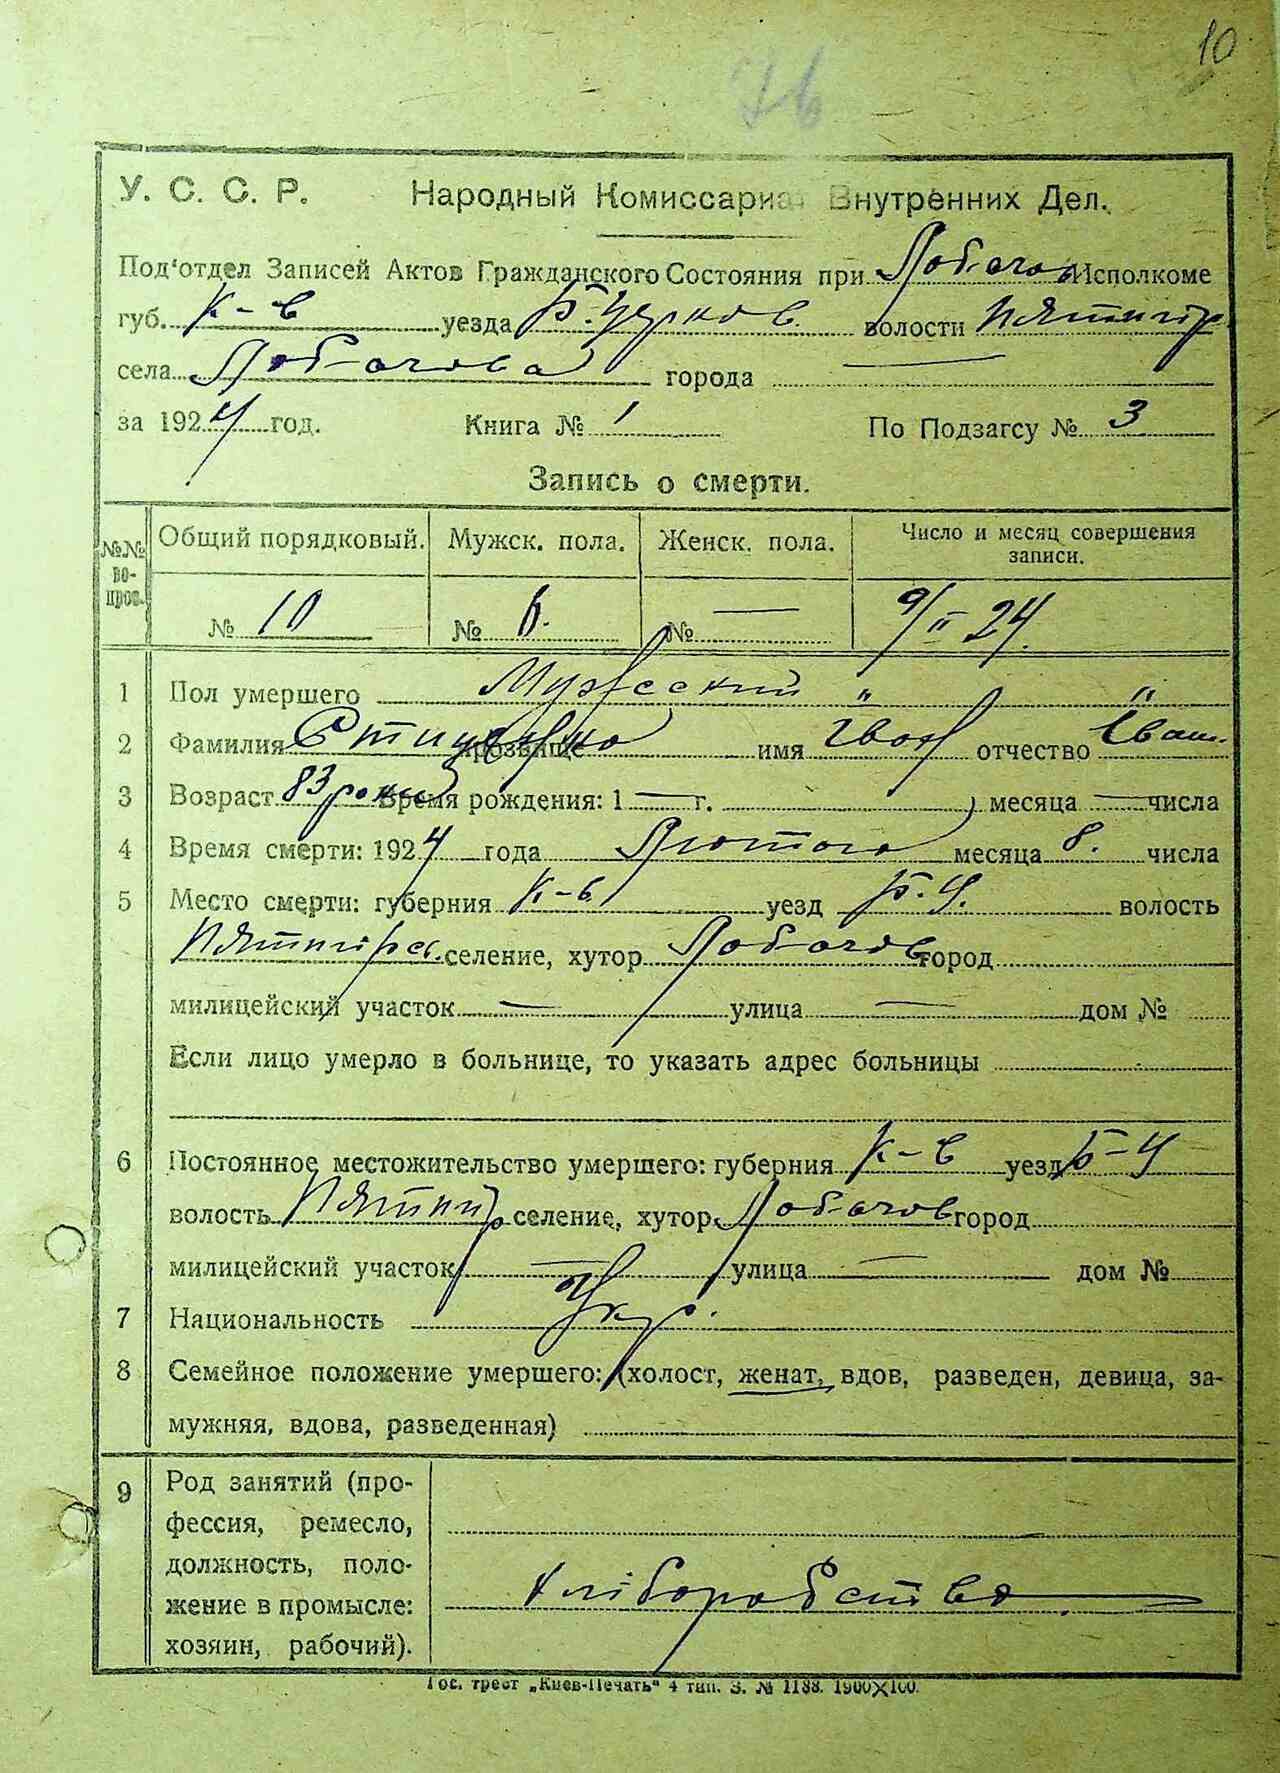 10
76
У. С. С. Р. Народный Комиссариат Внутренних Дел.
Под'отдел Записей Актов Гражданского Состояния при Лобачов Исполкоме
губ. К-в уезда Б. Церков. волости Пятигор
села Лобачова города —
за 1924 год. Книга № 1 По Подзагсу № 3
Запись о смерти.
№№ во-прос. Общий порядковый. Мужск. пола. Женск. пола. Число и месяц совершения записи.
№ 10 № 6. № — 9/II 24.
1 Пол умершего Мужеский
2 Фамилия прозвище имя Іван отчество Іван.
3 Возраст 83 роки Время рождения: 1 — г. месяца — числа
4 Время смерти: 1924 года Лютого месяца 8. числа
5 Место смерти: губерния К-в уезд Б. Ц. волость
Пятигорс. селение, хутор Лобачов город
милицейский участок — улица — дом №
Если лицо умерло в больнице, то указать адрес больницы
6 Постоянное местожительство умершего: губерния К-в уезд Б-Ц
волость Пятигор селение, хутор Лобачов город
милицейский участок — улица — дом №
7 Национальность Укр.
8 Семейное положение умершего: (холост, женат, вдов, разведен, девица, за-
мужняя, вдова, разведенная)
9 Род занятий (про-
фессия, ремесло,
должность, поло-
жение в промысле:
хозяин, рабочий).
хліборобство
Гос. трест „Киев-Печать" 4 тип. З. № 1188. 1900×100.